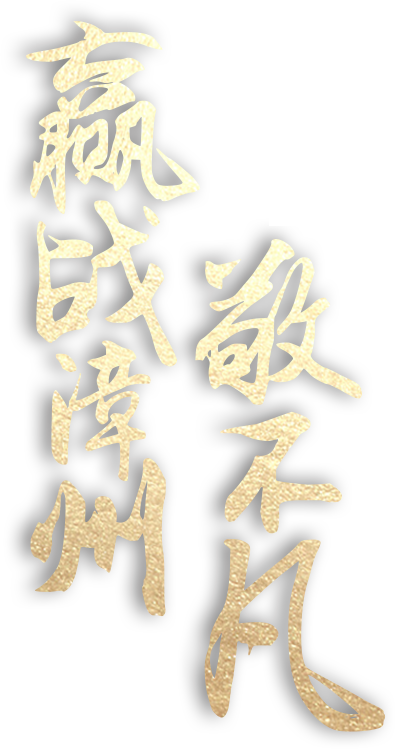 赢战漳州
敬不凡